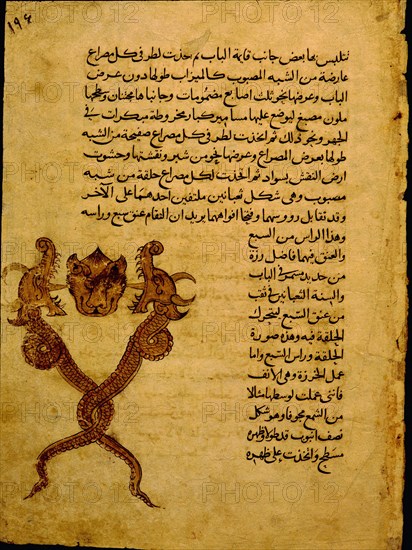 ١٩٤
تتلبس بها بعض جانب قايمة الباب ثم اتخذت لطرفي كل مصراع
عارضة من الشبه المصبوب كالميزاب طولها دون عرض
الباب وعرضها نحو ثلث اصابع مضمومات وجانباها
ليوضع عليها مسامير كبار مخروطة مبكرات في
الجهر ونحو ذلك ثم اتخذت لطرفي كل مصراع صفيحة من الشبه
طولها بعرض المصراع وعرضها نحو من شبر ونقشتها وحشوت
ارض النقش بسواد ثم اتخذت لكل مصراع حلقة من شبه
مصبوب وهي شكل ثعبانين ملتفين احدهما على الآخر
وقد تقابل رووسهما وفتحا افواههما يريدان التقام عنق سبع وراسه
وهذا الراس من السبع
والعنق فيهما فاضل رزة
من حديد مسمر في الباب
والسنة الثعبانين في ثقب
من عنق السبع لتتحرك
الحلقة فيه وهذه صورة
الحلقة وراس السبع واما
عمل الخرزة وهي الانف
فانني عملت لوسطها مثالا
من الشمع مجوفا وهو شكل
نصف انبوب قد طولا وظهره
مسطح واتخذت على ظهره
PHOTO 12